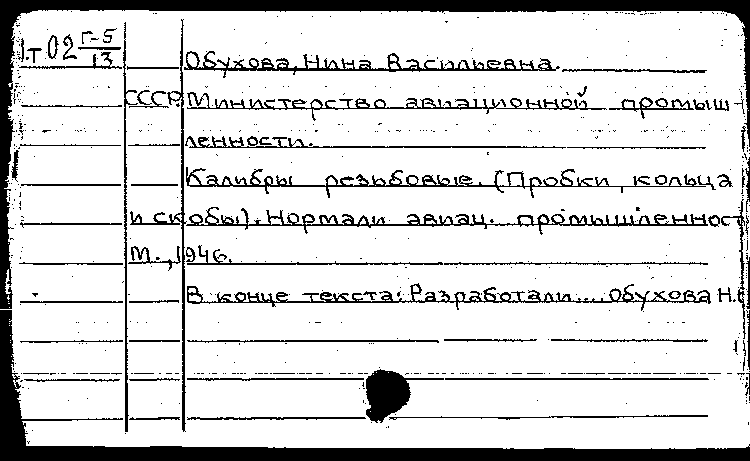 1.т 02 Г-5/13
Обухова, Нина Васильевна.
СССР. Министерство авиационной промыш-
ленности.
Калибры резьбовые. (Пробки, кольца
и скобы). Нормали авиац. промышленност
М., 1946.
В конце текста: Разработали... Обухова Н.